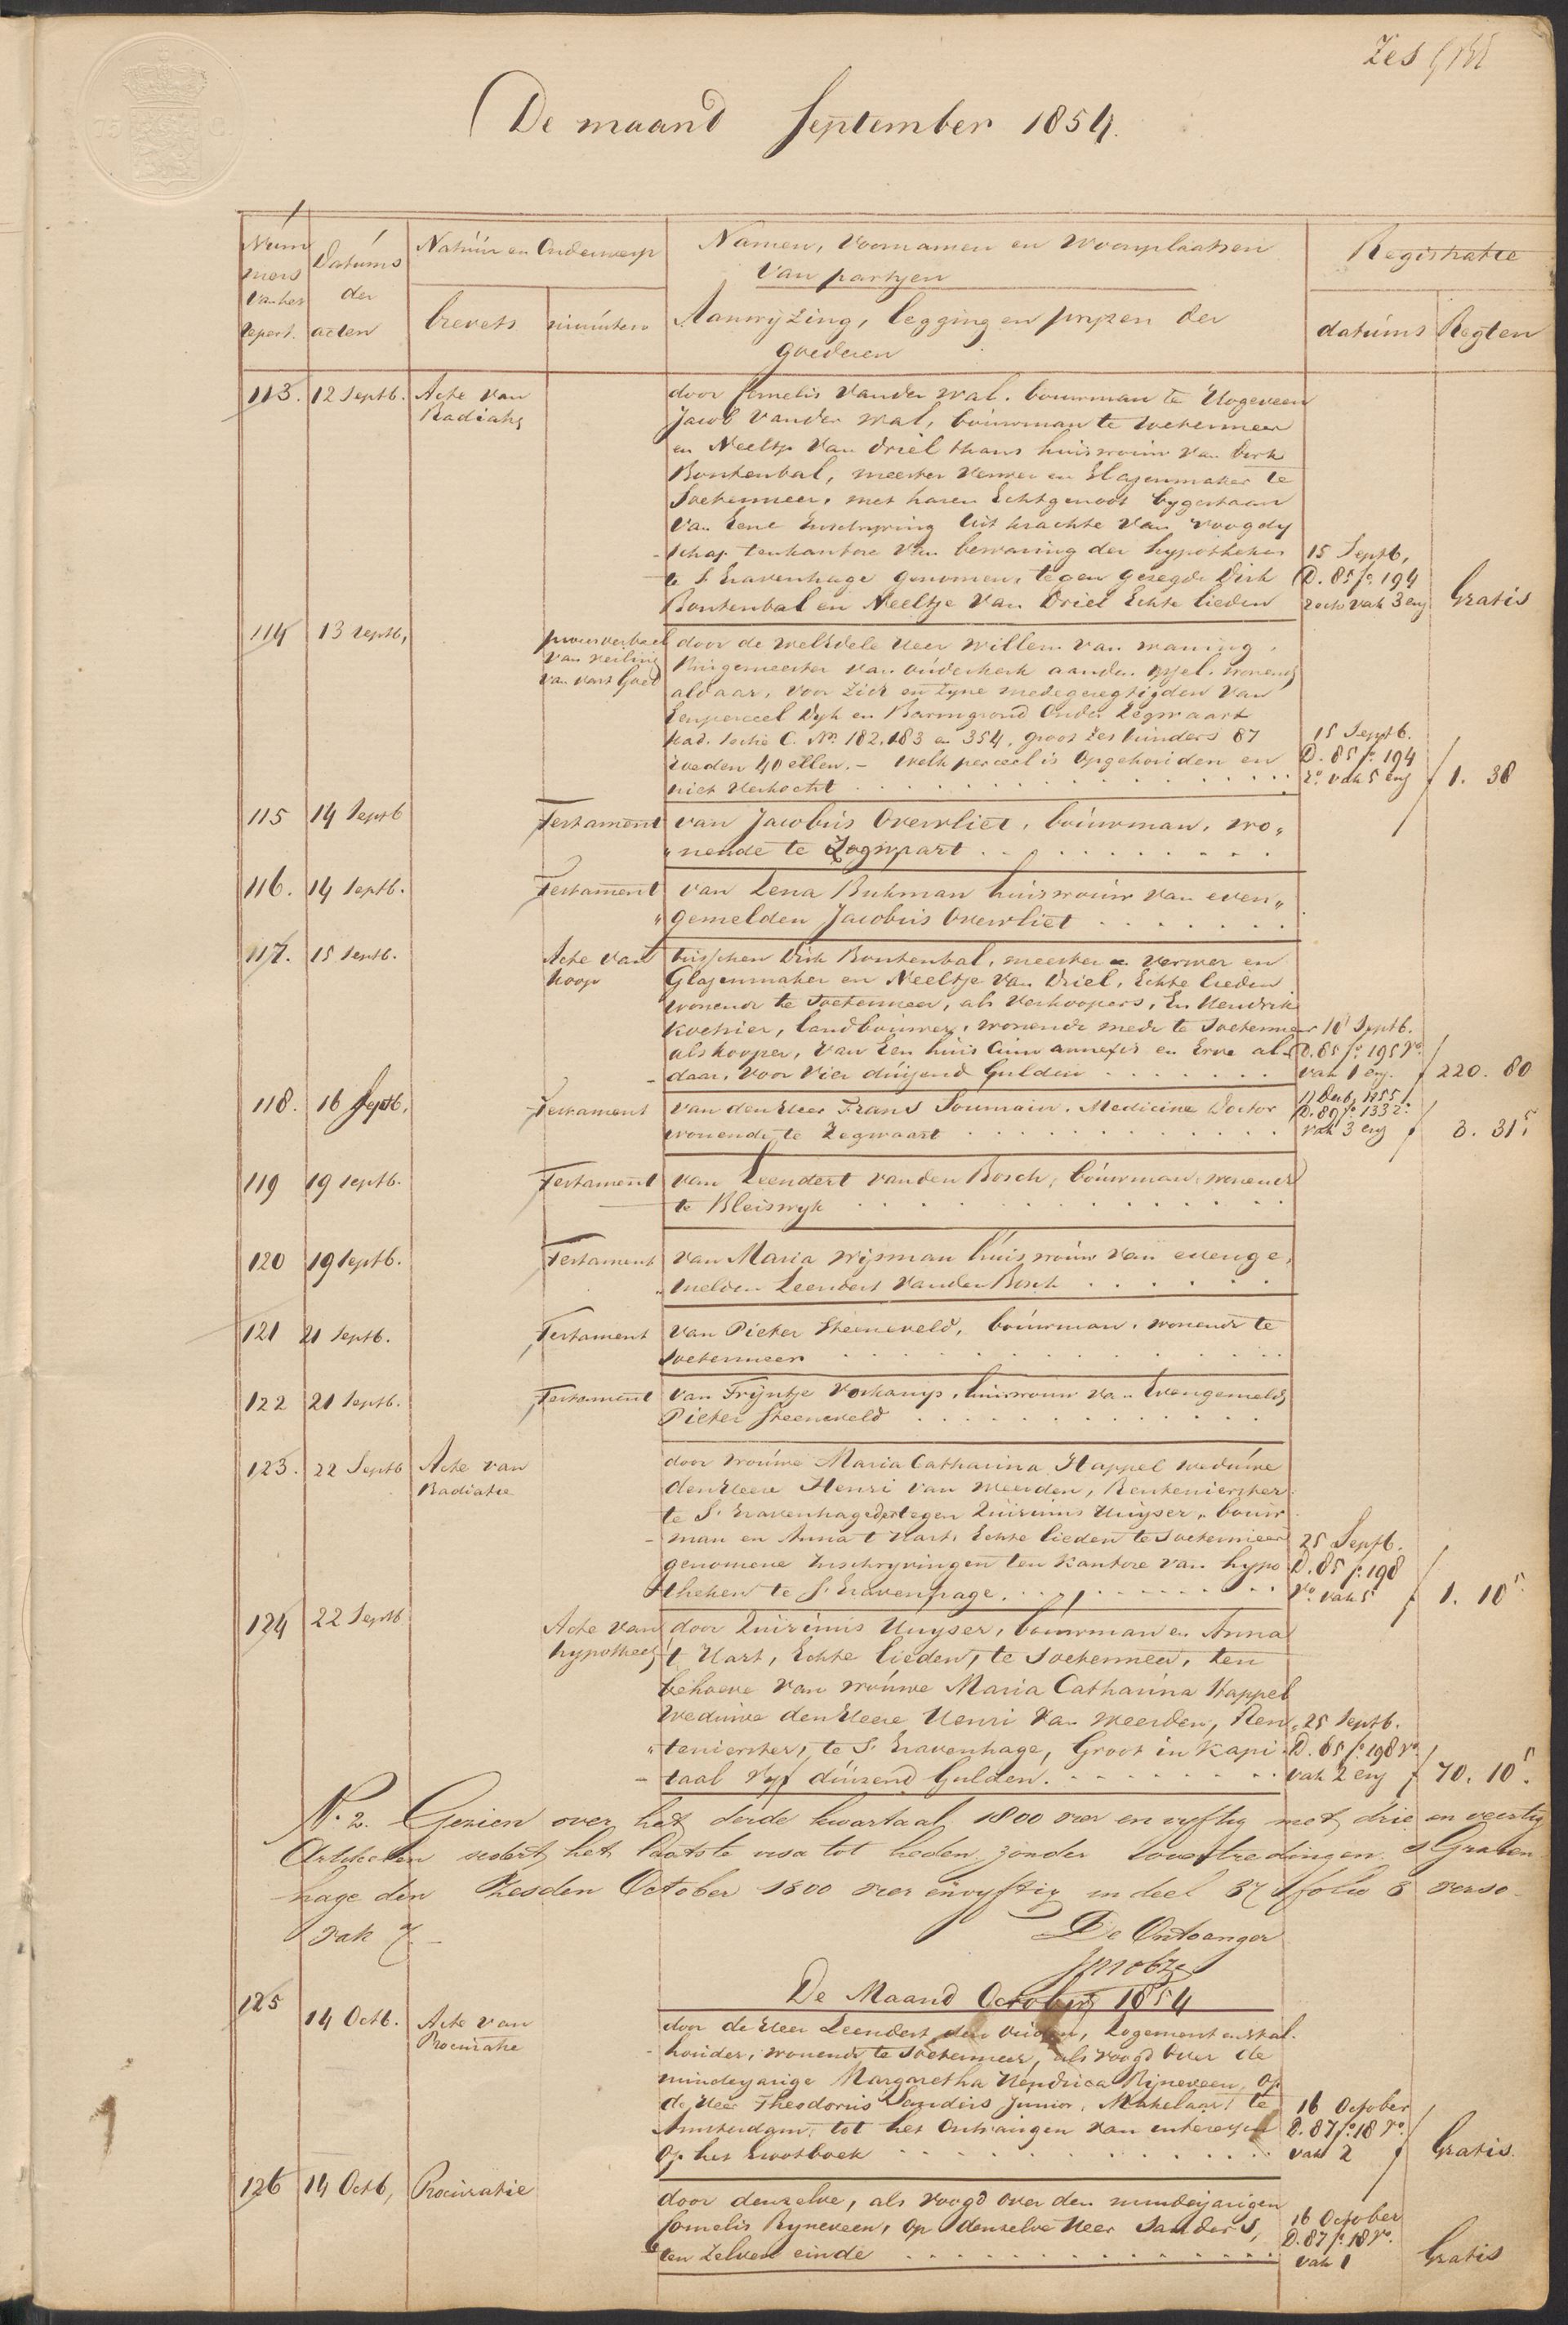 Zes
De maand September 1854.
Num
mers
van het
repert.
Datums
der
acten
Natuur en Onderwerp
brevets minuten
Namen, voornamen en woonplaatsen
van partyen
Aanwyzing, legging en pryzen der
goederen
Registratie
datums Regten
113. 12 Septb. Acte van
Radiatie
door Cornelis van der Wal. bouwman te Hogeveen
Jacob van der Wal, bouwman te Soetermeer
en Neeltje van Driel thans huisvrouw van Dirk
Bontenbal, meester Verwer en Glazenmaker te
Soetermeer, met haren Echtgenoot bygestaan
van Eene Inschryving uit krachte van voogdy
schap ten kantore van bewaring der hypotheken
te S Gravenhage genomen, tegen gezegde Dirk
Bontenbal en Neeltje van Driel Echte lieden
15 Septb,
D. 85 fo 194
recto vak 3 eng
Gratis
114 13 Septb, procesverbaal
van veiling
van vast goed
door de WelEdele Heer Willem van Waning,
Burgemeester van Ouderkerk aan den Yssel, wonende
aldaar, voor zich en zyne medegeregtigden van
Een perceel Dyk en Barmgrond onder Zegwaart
kad. sectie C. No 182, 183 en 354, groot zes bunders 87
roeden 40 ellen. - welk perceel is opgehouden en
niet verkocht
15 Septb.
D. 85 fo 194
ro vak 5 eng f 1. 38
115 14 Septb Testament van Jacobus Overvliet, bouwman, wo„
„nende te Zegwaart
116. 14 Septb. Testament van Lena Buhman huisvrouw van even„
„gemelden Jacobus Overvliet
117. 15 Septb. Acte van
koop
tusschen Dirk Bontenbal, meester Verwer en
Glazenmaker en Neeltje van Driel, Echte lieden
wonende te Soetermeer, als verkoopers, En Hendrik
landbouwer, wonende mede te Soetermeer
als kooper, van Een huis cum annexis en Erve al„
daar, voor vier duizend Gulden
18 Septb.
D. 85 fo 195 Vo
vak 1 eng. f 220. 80
118. 16 Septb. Testament van den Heer Frans Soumain, Medicine Doctor
wonende te Zegwaart
1855
D. 89 fo 133 ro
vak 3 eng f 3. 31 5
119 19 Septb. Testament van Leendert van den Bosch, bouwman, wonende
te Bleiswyk
120 19 Septb. Testament van Maria Wijsman huisvrouw van evenge„
„melden Leendert van den Bosch
121 21 Septb. Testament van Pieter Steeneveld, bouwman, wonende te
Soetermeer
122 21 Septb. Testament van Trijntje Verkamp, huisvrouw van Evengemelde
Pieter Steeneveld
123. 22 Septb Acte van
Radiatie
door Vrouwe Maria Catharina Happel weduwe
den Heere Henri van Meerden, Rentenierster
te S' Gravenhage der tegen Quirinus Huyser, bouw
man en Anna 't Hart, Echte lieden te Soetermeer
genomene Inschryvingen ten kantore van hypo
theken te S' Gravenhage.
25 Septb.
D. 85 fo 198
Vo vak 5 f 1. 10 5
124 22 Septb Acte van
hypotheek
door Quirinus Huyser, bouwman en Anna
't Hart, Echte lieden, te Soetermeer, ten
behoeve van Vrouwe Maria Catharina Happel
Weduwe den Heere Henri van Meerden, Ren„
„tenierster, te S' Gravenhage, Groot in Kapi
taal Vyf duizend Gulden.
25 Septb.
D. 85 fo 198 Vo
vak 2 eng f 70. 10 5
N. 2. Gezien over het derde kwartaal 1800 vier en vyftig met drie en veertig
Artikelen sedert het laatste visa tot heden zonder overtredingen. s'Graven
hage den Zesden October 1800 vier en vyftig in deel 37 folio 8 verso
vak 7.
De Ontvanger
De Maand October 1854
125 14 Octb. Acte van
Procuratie
door de Heer Leendert den Ouden, Logement en stal
houder, wonende te Soetermeer, als voogd over de
minderjarige Margaretha Hendrica Rijneveen, op
de Heer Theodorus Sanders Junior, Makelaar te
Amsterdam, tot het Ontvangen van interessen
Op het Grootboek
16 October
D. 87 fo 18 Vo
vak 2 f Gratis.
126 14 Octb, Procuratie door denzelve, als voogd over den minderjarigen
Cornelis Rijneveen, Op denzelve Heer Sanders,
ten zelven einde
16 October
D. 87 fo 18 Vo.
vak 1 Gratis